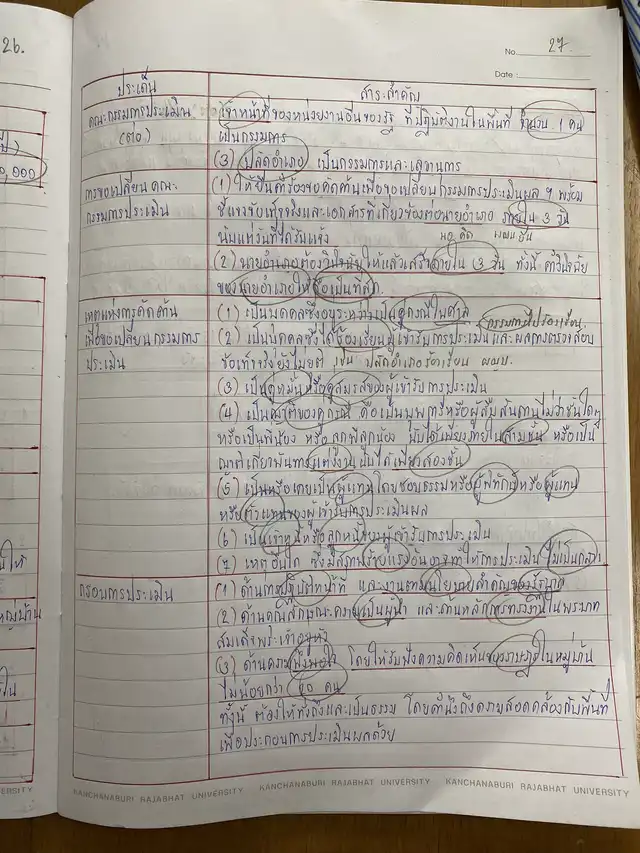 26.
0,000
No. 27.
Date :
ประเด็น
สาระสำคัญ
คณะกรรมการประเมิน
(ต่อ)
เจ้าหน้าที่ของหน่วยงานอื่นของรัฐ ที่ปฏิบัติงานในพื้นที่ จำนวน 1 คน
เป็นกรรมการ
(3) ปลัดอำเภอ เป็นกรรมการและเลขานุการ
การขอเปลี่ยนคณะ
กรรมการประเมิน
(1) ให้ยื่นคำร้องขอคัดค้านเพื่อขอเปลี่ยนกรรมการประเมินผล ฯ พร้อม
ชี้แจงข้อเท็จจริงและเอกสารที่เกี่ยวข้องต่อนายอำเภอ ภายใน 3 วัน
นับแต่วันที่ได้รับแจ้ง
(2) นายอำเภอต้องวินิจฉัยให้แล้วเสร็จภายใน 3 วัน ทั้งนี้ คำวินิจฉัย
ของนายอำเภอให้ถือเป็นที่สุด
เหตุแห่งการคัดค้าน
เพื่อขอเปลี่ยนกรรมการ
ประเมิน
(1) เป็นบุคคลซึ่งอยู่ระหว่างเป็นคู่กรณีในศาล
กรรมการมีเรื่องร้องเรียน.
(2) เป็นบุคคลซึ่งได้ร้องเรียนผู้เข้ารับการประเมินและผลการตรวจสอบ
ข้อเท็จจริงยังไม่ยุติ เช่น ปลัดอำเภอร้องเรียน ผญบ.
(3) เป็นคู่หมั้นหรือคู่สมรสของผู้เข้ารับการประเมิน
(4) เป็นญาติของคู่กรณี คือเป็นบุพการีหรือผู้สืบสันดานไม่ว่าชั้นใดๆ
หรือเป็นพี่น้อง หรือ ลูกพี่ลูกน้อง นับได้เพียงภายในสามชั้น หรือเป็น
ญาติเกี่ยวพันทางแต่งงานนับได้เพียงสองชั้น
(5) เป็นหรือเคยเป็นผู้แทนโดยชอบธรรมหรือผู้พิทักษ์หรือผู้แทน
หรือตัวแทนของผู้เข้ารับการประเมินผล
(6) เป็นเจ้าหนี้หรือลูกหนี้ของผู้เข้ารับการประเมิน
(7) เหตุอื่นใด ซึ่งมีสภาพร้ายแรงอันอาจทำให้การประเมินไม่เป็นกลาง
กรอบการประเมิน
(1) ด้านการปฏิบัติหน้าที่ และงานตามนโยบายสำคัญของรัฐบาล
(2) ด้านคุณลักษณะความเป็นผู้นำ และด้านหลักการทรงงานในพระบาท
สมเด็จพระเจ้าอยู่หัว
(3) ด้านความพึงพอใจ โดยให้รับฟังความคิดเห็นของราษฎรในหมู่บ้าน
ไม่น้อยกว่า 20 คน
ทั้งนี้ ต้องให้ทั่วถึงและเป็นธรรม โดยคำนึงถึงความสอดคล้องกับพื้นที่
เพื่อประกอบการประเมินผลด้วย
ERSITY
KANCHANABURI RAJABHAT UNIVERSITY KANCHANABURI RAJABHAT UNIVERSITY KANCHANABURI RAJABHAT UNIVERSITY